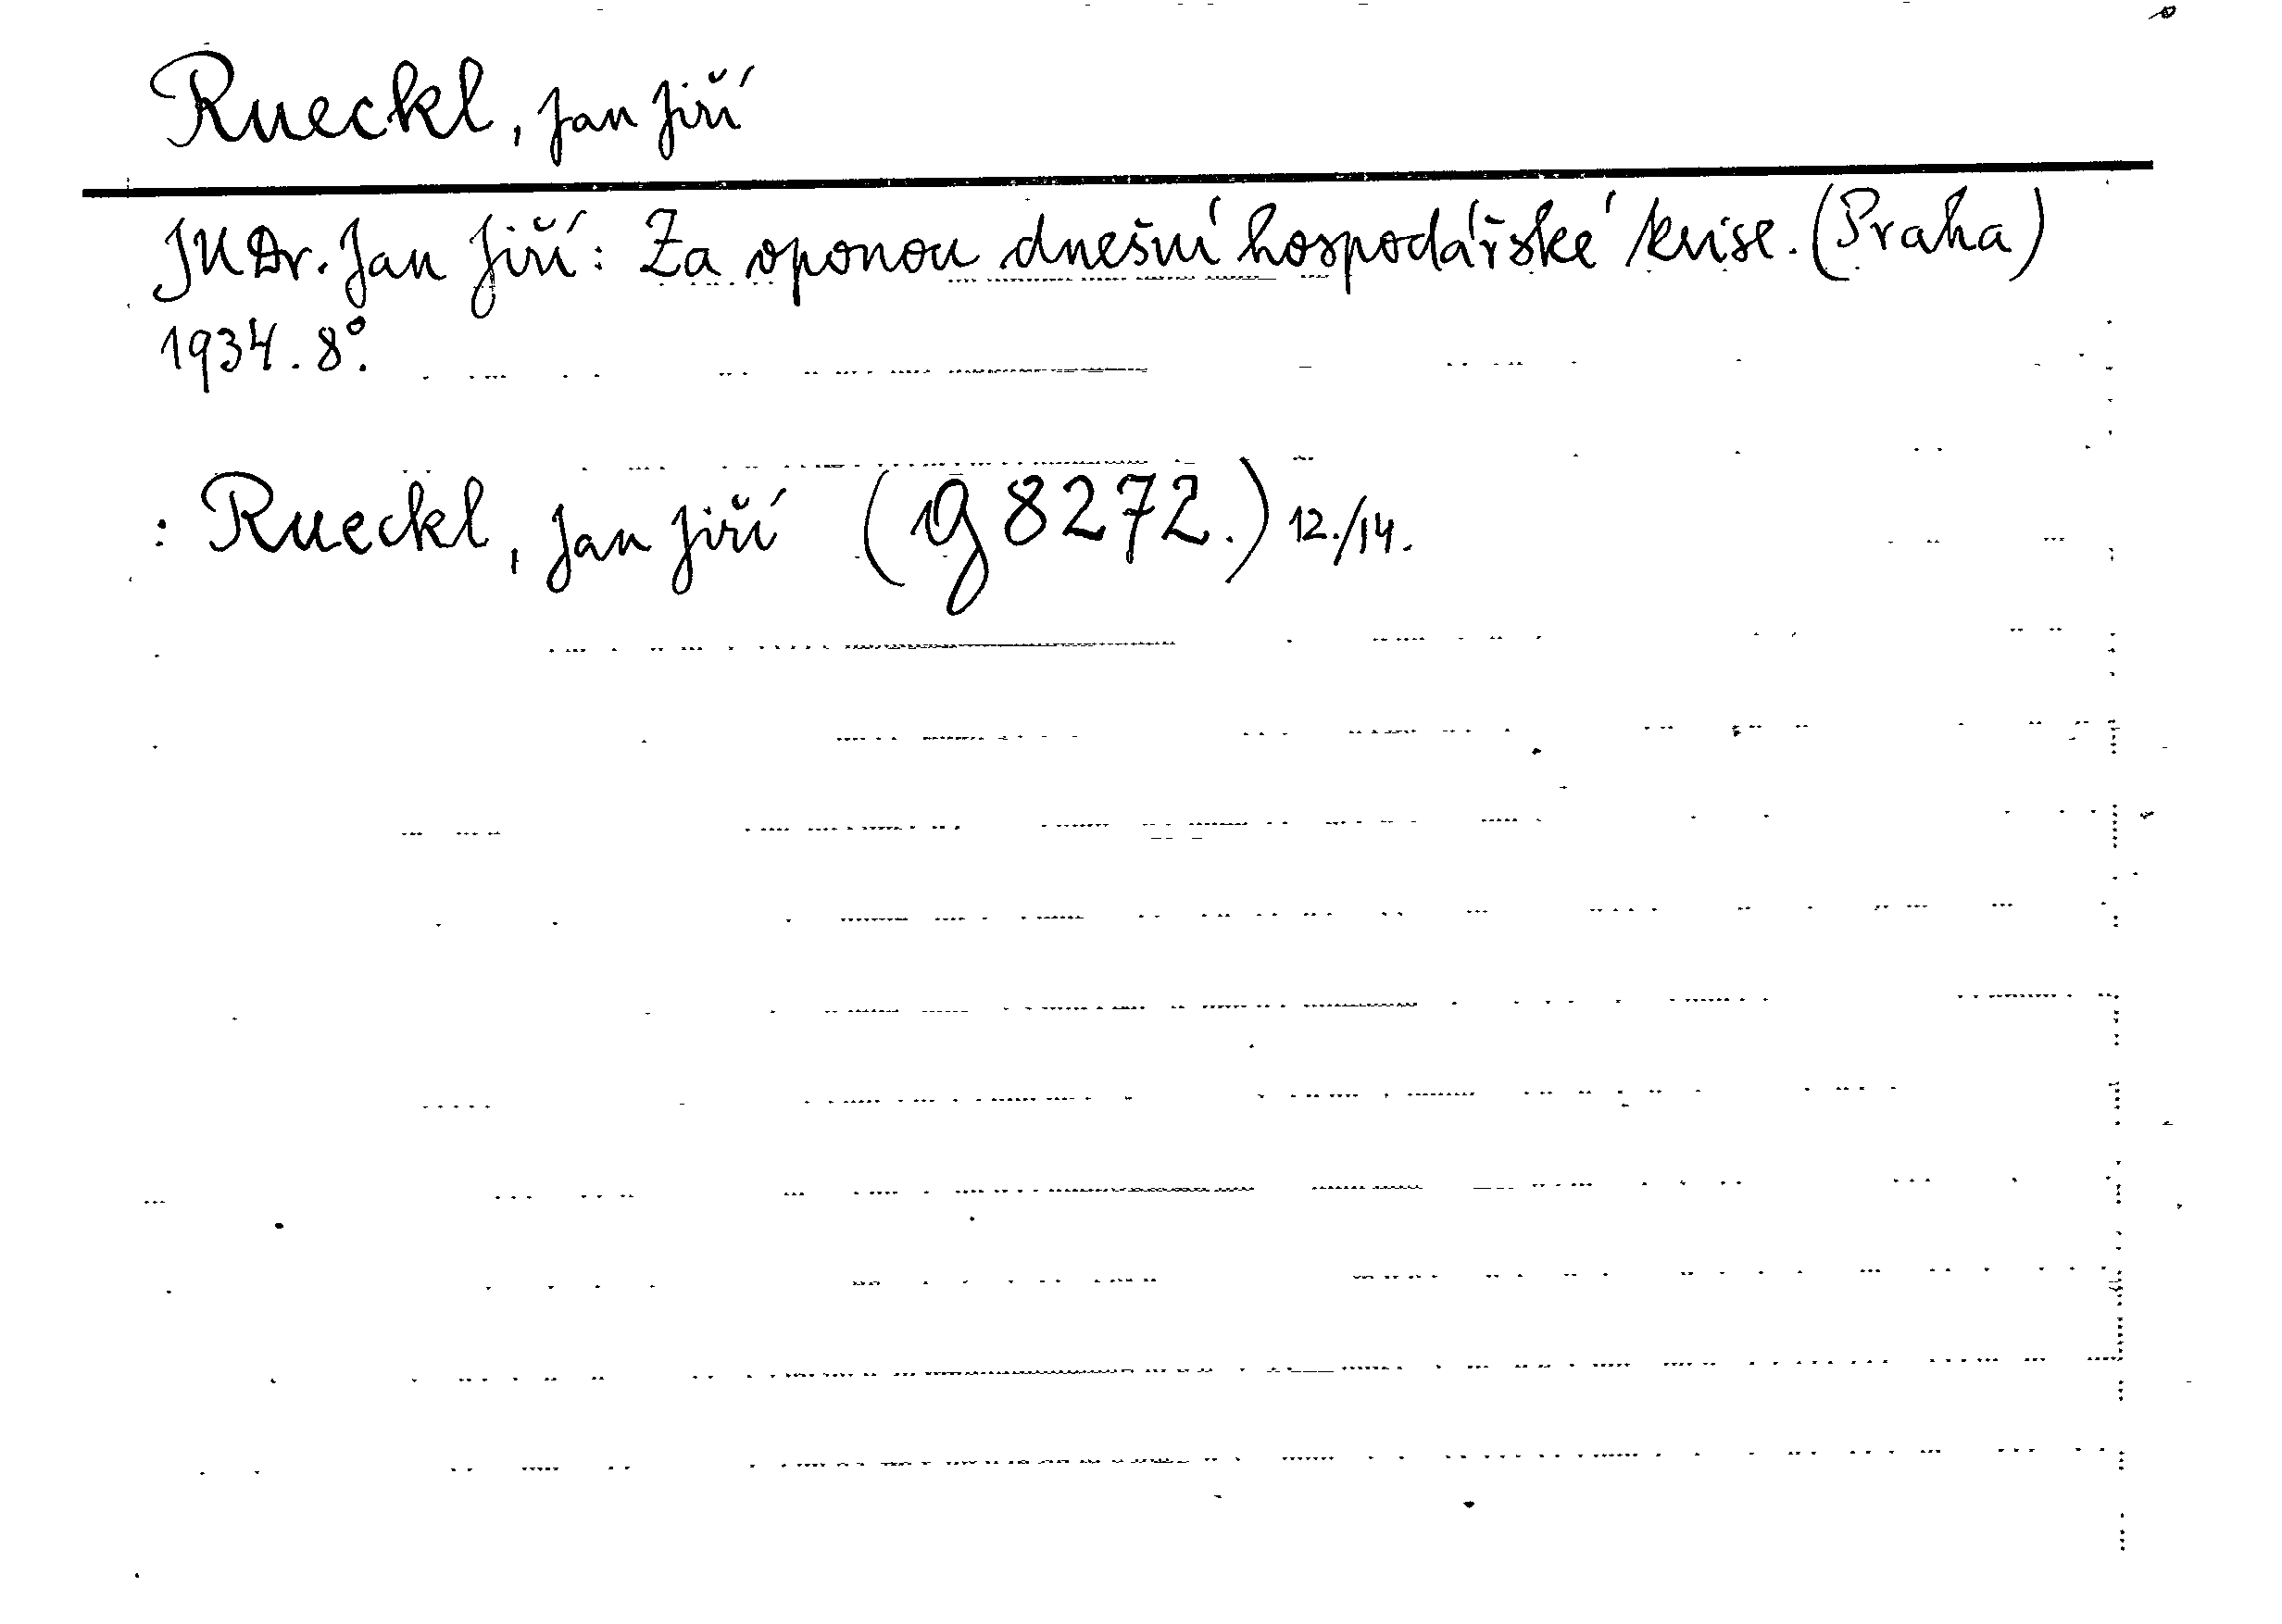 Rueckl, Jan Jiří
JUDr. Jan Jiří: Za oponou dnešní hospodářské krise. (Praha)
1934. 8°.
: Rueckl, Jan Jiří (g 8272.) 12./14.